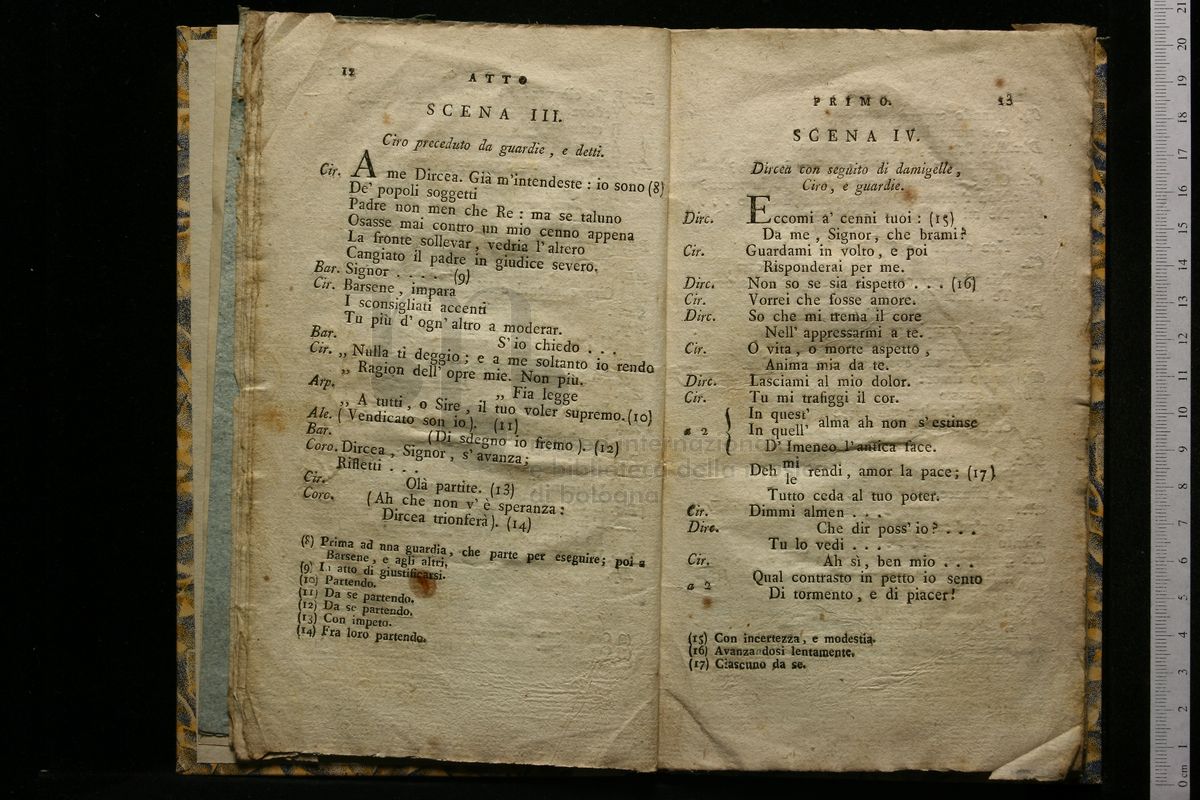 12
ATTO
SCENA III.
Ciro preceduto da guardie, e detti.
Cir. A me Dircea. Già m'intendeste: io sono (8)
De' popoli soggetti
Padre non men che Re: ma se taluno
Osasse mai contro un mio cenno appena
La fronte sollevar, vedria l'altero
Cangiato il padre in giudice severo.
Bar. Signor . . . . (9)
Cir. Barsene, impara
I sconsigliati accenti
Tu più d' ogn' altro a moderar.
Bar. S'io chiedo . . .
Cir. „ Nulla ti deggio; e a me soltanto io rendo
„ Ragion dell' opre mie. Non più.
Arp. „ Fia legge
„ A tutti, o Sire, il tuo voler supremo. (10)
Ale. (Vendicato son io). (11)
Bar. (Di sdegno io fremo). (12)
Coro. Dircea, Signor, s'avanza;
Rifletti . . .
Cir. Olà partite. (13)
Coro. (Ah che non v' è speranza:
Dircea trionferà). (14)
(8) Prima ad una guardia, che parte per eseguire; poi a
Barsene, e agli altri,
(9) In atto di giustificarsi.
(10) Partendo.
(11) Da se partendo.
(12) Da se partendo.
(13) Con impeto.
(14) Fra loro partendo.
PRIMO.
13
SCENA IV.
Dircea con seguito di damigelle,
Ciro, e guardie.
Dirc. Eccomi a' cenni tuoi: (15)
Da me, Signor, che brami?
Cir. Guardami in volto, e poi
Risponderai per me.
Dirc. Non so se sia rispetto . . . (16)
Cir. Vorrei che fosse amore.
Dirc. So che mi trema il core
Nell' appressarmi a te.
Cir. O vita, o morte aspetto,
Anima mia da te.
Dirc. Lasciami al mio dolor.
Cir. Tu mi trafiggi il cor.
a 2 { In quest' / In quell' alma ah non s'estinse
D' Imeneo l'antica face.
Deh mi / le rendi, amor la pace; (17)
Tutto ceda al tuo poter.
Cir. Dimmi almen . . .
Dirc. Che dir poss' io? . . .
Tu lo vedi . . .
Cir. Ah sì, ben mio . . .
a 2 Qual contrasto in petto io sento
Di tormento, e di piacer!
(15) Con incertezza, e modestia.
(16) Avanzandosi lentamente.
(17) Ciascuno da se.
internazionale
e biblioteca della
di bologna
0 cm 1 2 3 4 5 6 7 8 9 10 11 12 13 14 15 16 17 18 19 20 21